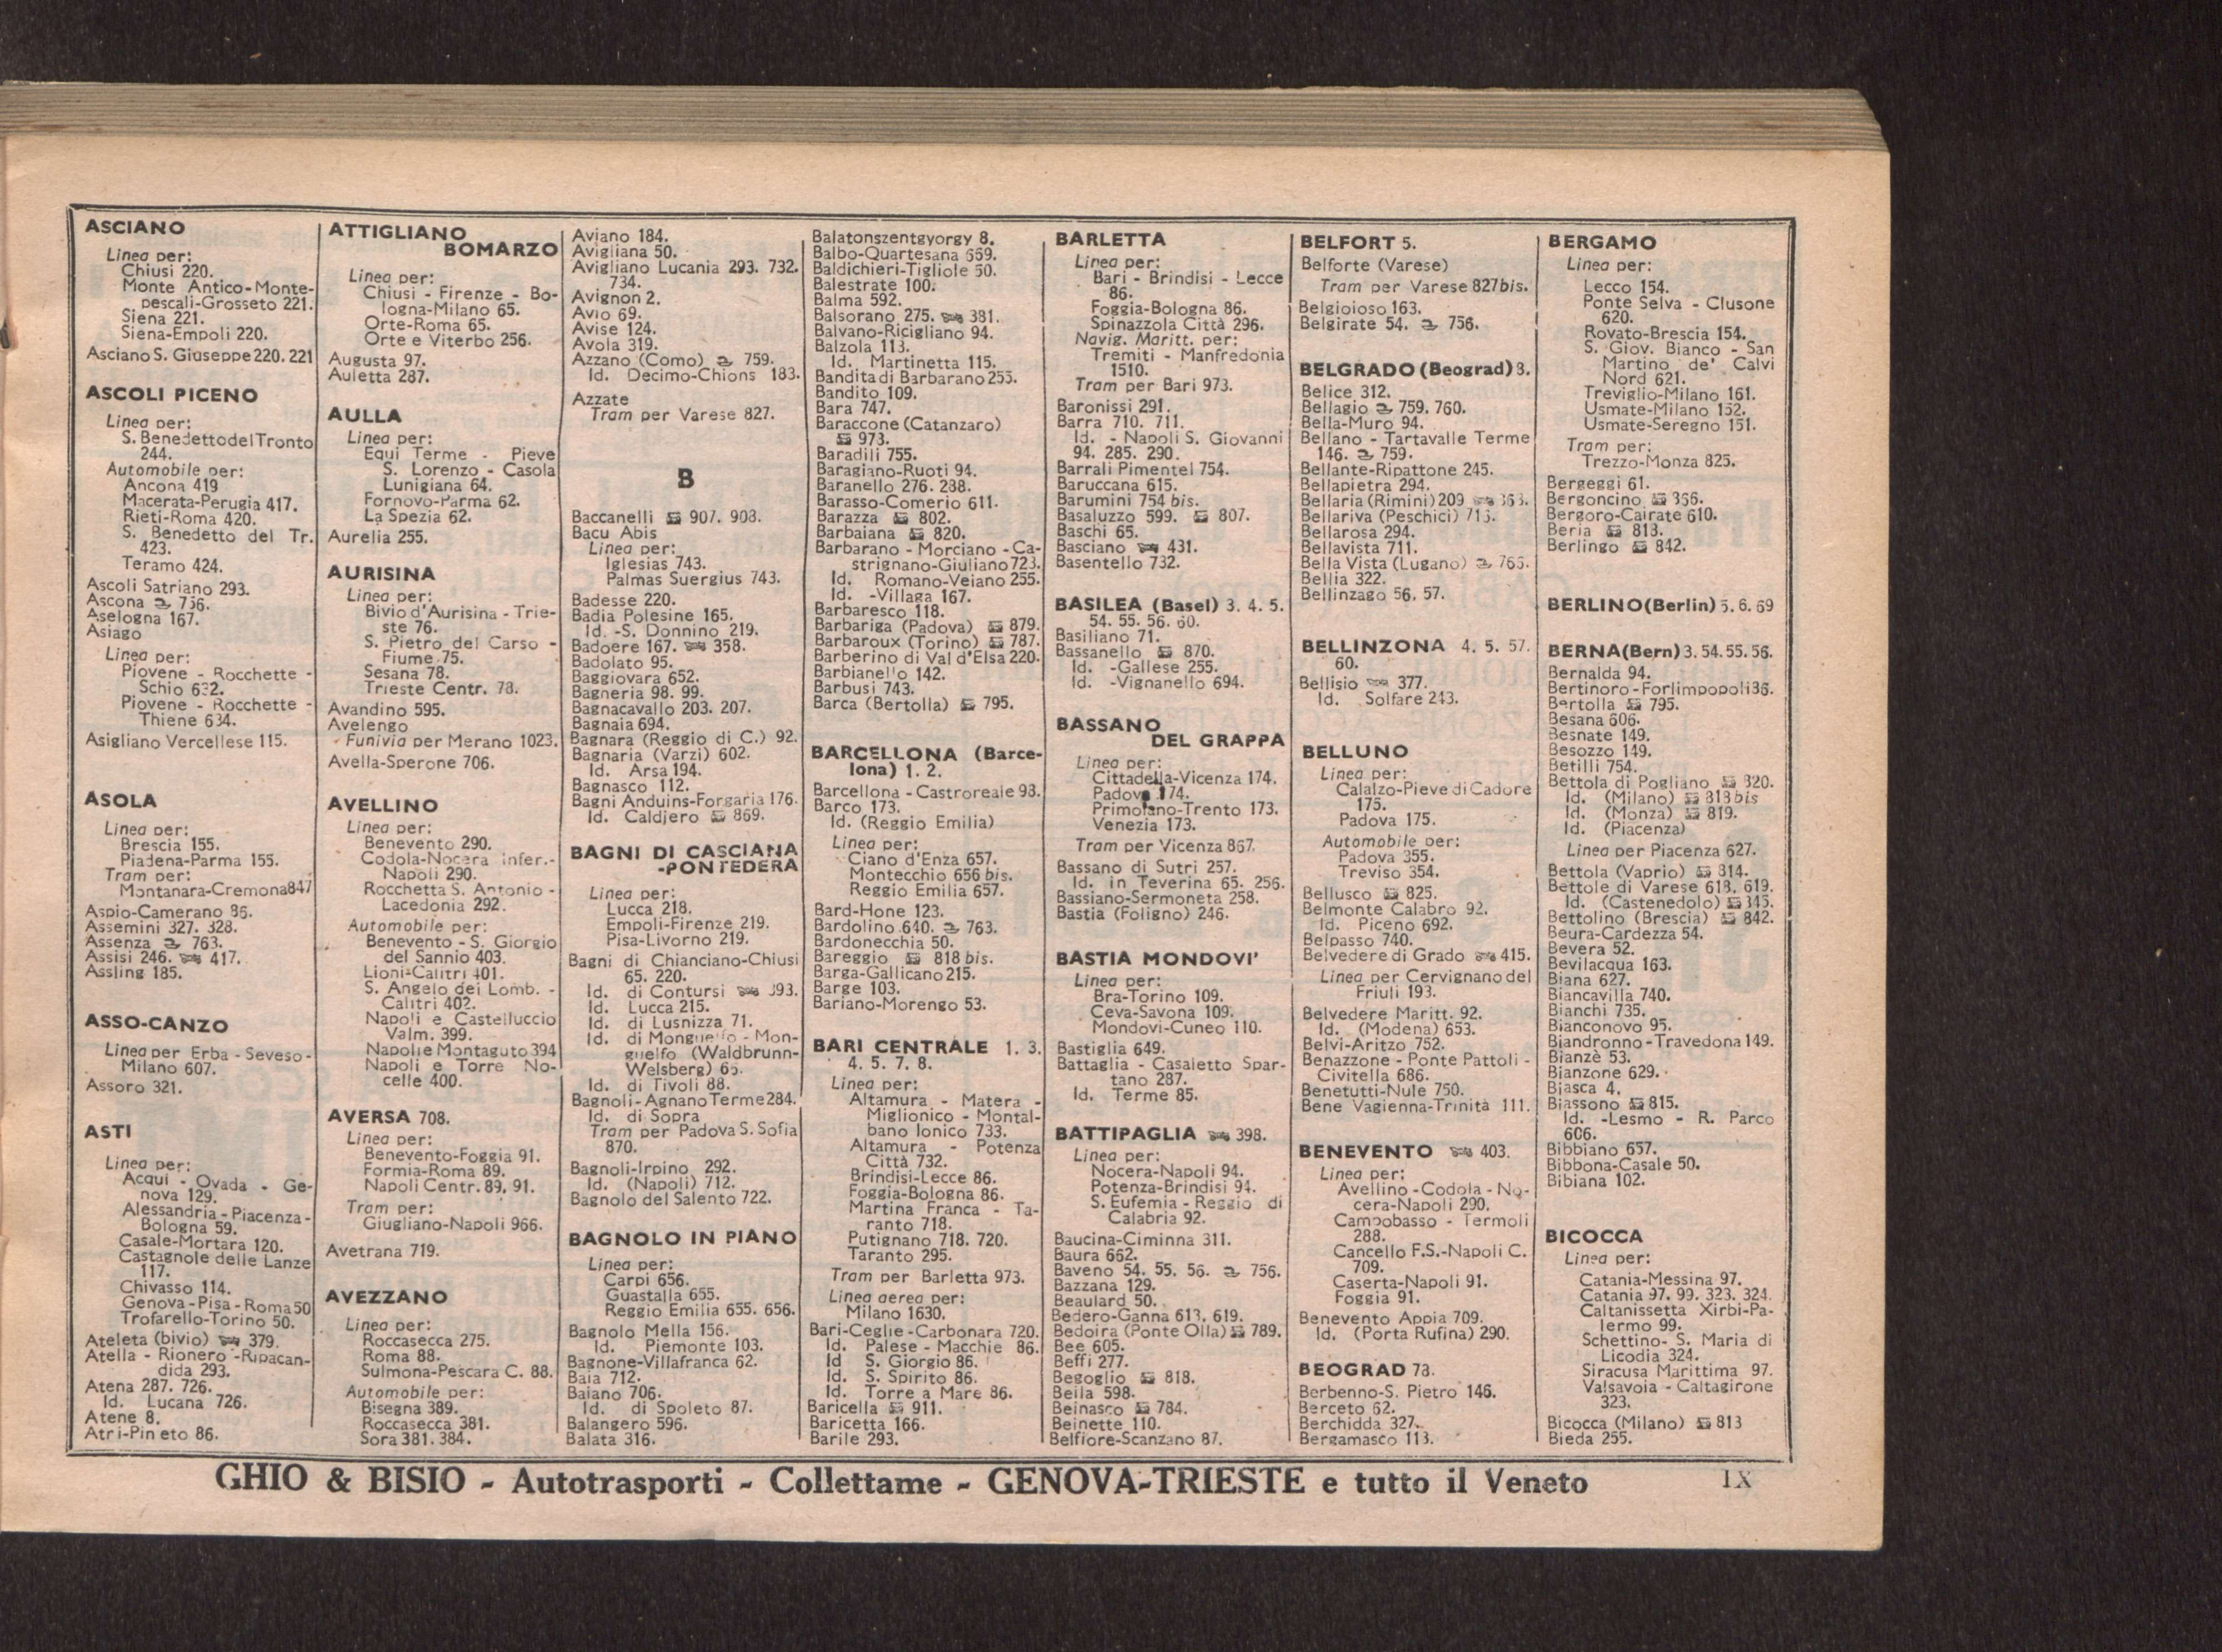 ASCIANO
Linea per:
Chiusi 220.
Monte Antico-Monte-
pescali-Grosseto 221.
Siena 221.
Siena-Empoli 220.
Asciano S. Giuseppe 220. 221
ASCOLI PICENO
Linea per:
S. Benedetto del Tronto
244.
Automobile per:
Ancona 419
Macerata-Perugia 417.
Rieti-Roma 420.
S. Benedetto del Tr.
423.
Teramo 424.
Ascoli Satriano 293.
Ascona 756.
Aselogna 167.
Asiago
Linea per:
Piovene - Rocchette -
Schio 632.
Piovene - Rocchette -
Thiene 634.
Asigliano Vercellese 115.
ASOLA
Linea per:
Brescia 155.
Piadena-Parma 155.
Tram per:
Montanara-Cremona 847
Aspio-Camerano 86.
Assemini 327. 328.
Assenza 763.
Assisi 246. 417.
Assling 185.
ASSO-CANZO
Linea per Erba - Seveso -
Milano 607.
Assoro 321.
ASTI
Linea per:
Acqui - Ovada - Ge-
nova 129.
Alessandria - Piacenza -
Bologna 59.
Casale-Mortara 120.
Castagnole delle Lanze
117.
Chivasso 114.
Genova - Pisa - Roma 50
Trofarello-Torino 50.
Ateleta (bivio) 379.
Atella - Rionero - Ripacan-
dida 293.
Atena 287. 726.
Id. Lucana 726.
Atene 8.
Atri-Pineto 86.
ATTIGLIANO
BOMARZO
Linea per:
Chiusi - Firenze - Bo-
logna-Milano 65.
Orte-Roma 65.
Orte e Viterbo 256.
Augusta 97.
Auletta 287.
AULLA
Linea per:
Equi Terme - Pieve
S. Lorenzo - Casola
Lunigiana 64.
Fornovo-Parma 62.
La Spezia 62.
Aurelia 255.
AURISINA
Linea per:
Bivio d'Aurisina - Trie-
ste 76.
S. Pietro del Carso -
Fiume 75.
Sesana 78.
Trieste Centr. 78.
Avandino 595.
Avelengo
Funivia per Merano 1023.
Avella-Sperone 706.
AVELLINO
Linea per:
Benevento 290.
Codola-Nocera Infer.-
Napoli 290.
Rocchetta S. Antonio -
Lacedonia 292.
Automobile per:
Benevento - S. Giorgio
del Sannio 403.
Lioni-Calitri 401.
S. Angelo dei Lomb. -
Calitri 402.
Napoli e Castelluccio
Valm. 399.
Napoli e Montaguto 394
Napoli e Torre No-
celle 400.
AVERSA 708.
Linea per:
Benevento-Foggia 91.
Formia-Roma 89.
Napoli Centr. 89. 91.
Tram per:
Giugliano-Napoli 966.
Avetrana 719.
AVEZZANO
Linea per:
Roccasecca 275.
Roma 88.
Sulmona-Pescara C. 88.
Automobile per:
Bisegna 389.
Roccasecca 381.
Sora 381. 384.
Aviano 184.
Avigliana 50.
Avigliano Lucania 293. 732.
734.
Avignon 2.
Avio 69.
Avise 124.
Avola 319.
Azzano (Como) 759.
Id. Decimo-Chions 183.
Azzate
Tram per Varese 827.
B
Baccanelli 907. 908.
Bacu Abis
Linea per:
Iglesias 743.
Palmas Suergius 743.
Badesse 220.
Badia Polesine 165.
Id. -S. Donnino 219.
Badoere 167. 358.
Badolato 95.
Baggiovara 652.
Bagneria 98. 99.
Bagnacavallo 203. 207.
Bagnaia 694.
Bagnara (Reggio di C.) 92.
Bagnaria (Varzi) 602.
Id. Arsa 194.
Bagnasco 112.
Bagni Anduins-Forgaria 176.
Id. Caldiero 869.
BAGNI DI CASCIANA
-PONTEDERA
Linea per:
Lucca 218.
Empoli-Firenze 219.
Pisa-Livorno 219.
Bagni di Chianciano-Chiusi
65. 220.
Id. di Contursi 393.
Id. Lucca 215.
Id. di Lusnizza 71.
Id. di Monguelfo - Mon-
guelfo (Waldbrunn-
Welsberg) 65.
Id. di Tivoli 88.
Bagnoli-Agnano Terme 284.
Id. di Sopra
Tram per Padova S. Sofia
870.
Bagnoli-Irpino 292.
Id. (Napoli) 712.
Bagnolo del Salento 722.
BAGNOLO IN PIANO
Linea per:
Carpi 656.
Guastalla 655.
Reggio Emilia 655. 656.
Bagnolo Mella 156.
Id. Piemonte 103.
Bagnone-Villafranca 62.
Baia 712.
Baiano 706.
Id. di Spoleto 87.
Balangero 596.
Balata 316.
Balatonszentgyorgy 8.
Balbo-Quartesana 659.
Baldichieri-Tigliole 50.
Balestrate 100.
Balma 592.
Balsorano 275. 381.
Balvano-Ricigliano 94.
Balzola 113.
Id. Martinetta 115.
Bandita di Barbarano 255.
Bandito 109.
Bara 747.
Baraccone (Catanzaro)
973.
Baradili 755.
Baragiano-Ruoti 94.
Baranello 276. 288.
Barasso-Comerio 611.
Barazza 802.
Barbaiana 820.
Barbarano - Morciano - Ca-
strignano-Giuliano 723.
Id. Romano-Veiano 255.
Id. -Villaga 167.
Barbaresco 118.
Barbariga (Padova) 879.
Barbaroux (Torino) 787.
Barberino di Val d'Elsa 220.
Barbianello 142.
Barbusi 743.
Barca (Bertolla) 795.
BARCELLONA (Barce-
lona) 1. 2.
Barcellona - Castroreale 98.
Barco 173.
Id. (Reggio Emilia)
Linea per:
Ciano d'Enza 657.
Montecchio 656 bis.
Reggio Emilia 657.
Bard-Hone 123.
Bardolino 640. 763.
Bardonecchia 50.
Bareggio 818 bis.
Barga-Gallicano 215.
Barge 103.
Bariano-Morengo 53.
BARI CENTRALE 1. 3.
4. 5. 7. 8.
Linea per:
Altamura - Matera -
Miglionico - Montal-
bano Ionico 733.
Altamura - Potenza
Città 732.
Brindisi-Lecce 86.
Foggia-Bologna 86.
Martina Franca - Ta-
ranto 718.
Putignano 718. 720.
Taranto 295.
Tram per Barletta 973.
Linea aerea per:
Milano 1630.
Bari-Ceglie-Carbonara 720.
Id. Palese - Macchie 86.
Id S. Giorgio 86.
Id. S. Spirito 86.
Id. Torre a Mare 86.
Baricella 911.
Baricetta 166.
Barile 293.
BARLETTA
Linea per:
Bari - Brindisi - Lecce
86.
Foggia-Bologna 86.
Spinazzola Città 296.
Navig. Maritt. per:
Tremiti - Manfredonia
1510.
Tram per Bari 973.
Baronissi 291.
Barra 710. 711.
Id. - Napoli S. Giovanni
94. 285. 290.
Barrali Pimentel 754.
Baruccana 615.
Barumini 754 bis.
Basaluzzo 599. 807.
Baschi 65.
Basciano 431.
Basentello 732.
BASILEA (Basel) 3. 4. 5.
54. 55. 56. 60.
Basiliano 71.
Bassanello 870.
Id. -Gallese 255.
Id. -Vignanello 694.
BASSANO
DEL GRAPPA
Linea per:
Cittadella-Vicenza 174.
Padova 174.
Primolano-Trento 173.
Venezia 173.
Tram per Vicenza 867.
Bassano di Sutri 257.
Id. in Teverina 65. 256.
Bassiano-Sermoneta 258.
Bastia (Foligno) 246.
BASTIA MONDOVI'
Linea per:
Bra-Torino 109.
Ceva-Savona 109.
Mondovi-Cuneo 110.
Bastiglia 649.
Battaglia - Casaletto Spar-
tano 287.
Id. Terme 85.
BATTIPAGLIA 398.
Linea per:
Nocera-Napoli 94.
Potenza-Brindisi 94.
S. Eufemia - Reggio di
Calabria 92.
Baucina-Ciminna 311.
Baura 662.
Baveno 54. 55. 56. 756.
Bazzana 129.
Beaulard 50.
Bedero-Ganna 613. 619.
Bedoira (Ponte Olla) 789.
Bee 605.
Beffi 277.
Begoglio 818.
Beila 598.
Beinasco 784.
Beinette 110.
Belfiore-Scanzano 87.
BELFORT 5.
Belforte (Varese)
Tram per Varese 827 bis.
Belgioioso 163.
Belgirate 54. 756.
BELGRADO (Beograd) 8.
Belice 312.
Bellagio 759. 760.
Bella-Muro 94.
Bellano - Tartavalle Terme
146. 759.
Bellante-Ripattone 245.
Bellapietra 294.
Bellaria (Rimini) 209 363.
Bellariva (Peschici) 715.
Bellarosa 294.
Bellavista 711.
Bella Vista (Lugano) 765.
Bellia 322.
Bellinzago 56. 57.
BELLINZONA 4. 5. 57.
60.
Bellisio 377.
Id. Solfare 243.
BELLUNO
Linea per:
Calalzo-Pieve di Cadore
175.
Padova 175.
Automobile per:
Padova 355.
Treviso 354.
Bellusco 825.
Belmonte Calabro 92.
Id. Piceno 692.
Belpasso 740.
Belvedere di Grado 415.
Linea per Cervignano del
Friuli 193.
Belvedere Maritt. 92.
Id. (Modena) 653.
Belvi-Aritzo 752.
Benazzone - Ponte Pattoli -
Civitella 686.
Benetutti-Nule 750.
Bene Vagienna-Trinità 111.
BENEVENTO 403.
Linea per:
Avellino - Codola - No-
cera-Napoli 290.
Campobasso - Termoli
288.
Cancello F.S.-Napoli C.
709.
Caserta-Napoli 91.
Foggia 91.
Benevento Appia 709.
Id. (Porta Rufina) 290.
BEOGRAD 78.
Berbenno-S. Pietro 146.
Berceto 62.
Berchidda 327.
Bergamasco 113.
BERGAMO
Linea per:
Lecco 154.
Ponte Selva - Clusone
620.
Rovato-Brescia 154.
S. Giov. Bianco - San
Martino de' Calvi
Nord 621.
Treviglio-Milano 161.
Usmate-Milano 152.
Usmate-Seregno 151.
Tram per:
Trezzo-Monza 825.
Bergeggi 61.
Bergoncino 356.
Bergoro-Cairate 610.
Beria 813.
Berlingo 842.
BERLINO (Berlin) 5. 6. 69
BERNA (Bern) 3. 54. 55. 56.
Bernalda 94.
Bertinoro-Forlimpopoli 36.
Bertolla 795.
Besana 606.
Besnate 149.
Besozzo 149.
Betilli 754.
Bettola di Pogliano 820.
Id. (Milano) 818 bis
Id. (Monza) 819.
Id. (Piacenza)
Linea per Piacenza 627.
Bettola (Vaprio) 814.
Bettole di Varese 618. 619.
Id. (Castenedolo) 845.
Bettolino (Brescia) 842.
Beura-Cardezza 54.
Bevera 52.
Bevilacqua 163.
Biana 627.
Biancavilla 740.
Bianchi 735.
Bianconovo 95.
Biandronno-Travedona 149.
Bianzè 53.
Bianzone 629.
Biasca 4.
Biassono 815.
Id. -Lesmo - R. Parco
606.
Bibbiano 657.
Bibbona-Casale 50.
Bibiana 102.
BICOCCA
Linea per:
Catania-Messina 97.
Catania 97. 99. 323. 324.
Caltanissetta Xirbi-Pa-
lermo 99.
Schettino- S. Maria di
Licodia 324.
Siracusa Marittima 97.
Valsavoia - Caltagirone
323.
Bicocca (Milano) 813
Bieda 255.
GHIO & BISIO - Autotrasporti - Collettame - GENOVA-TRIESTE e tutto il Veneto
IX